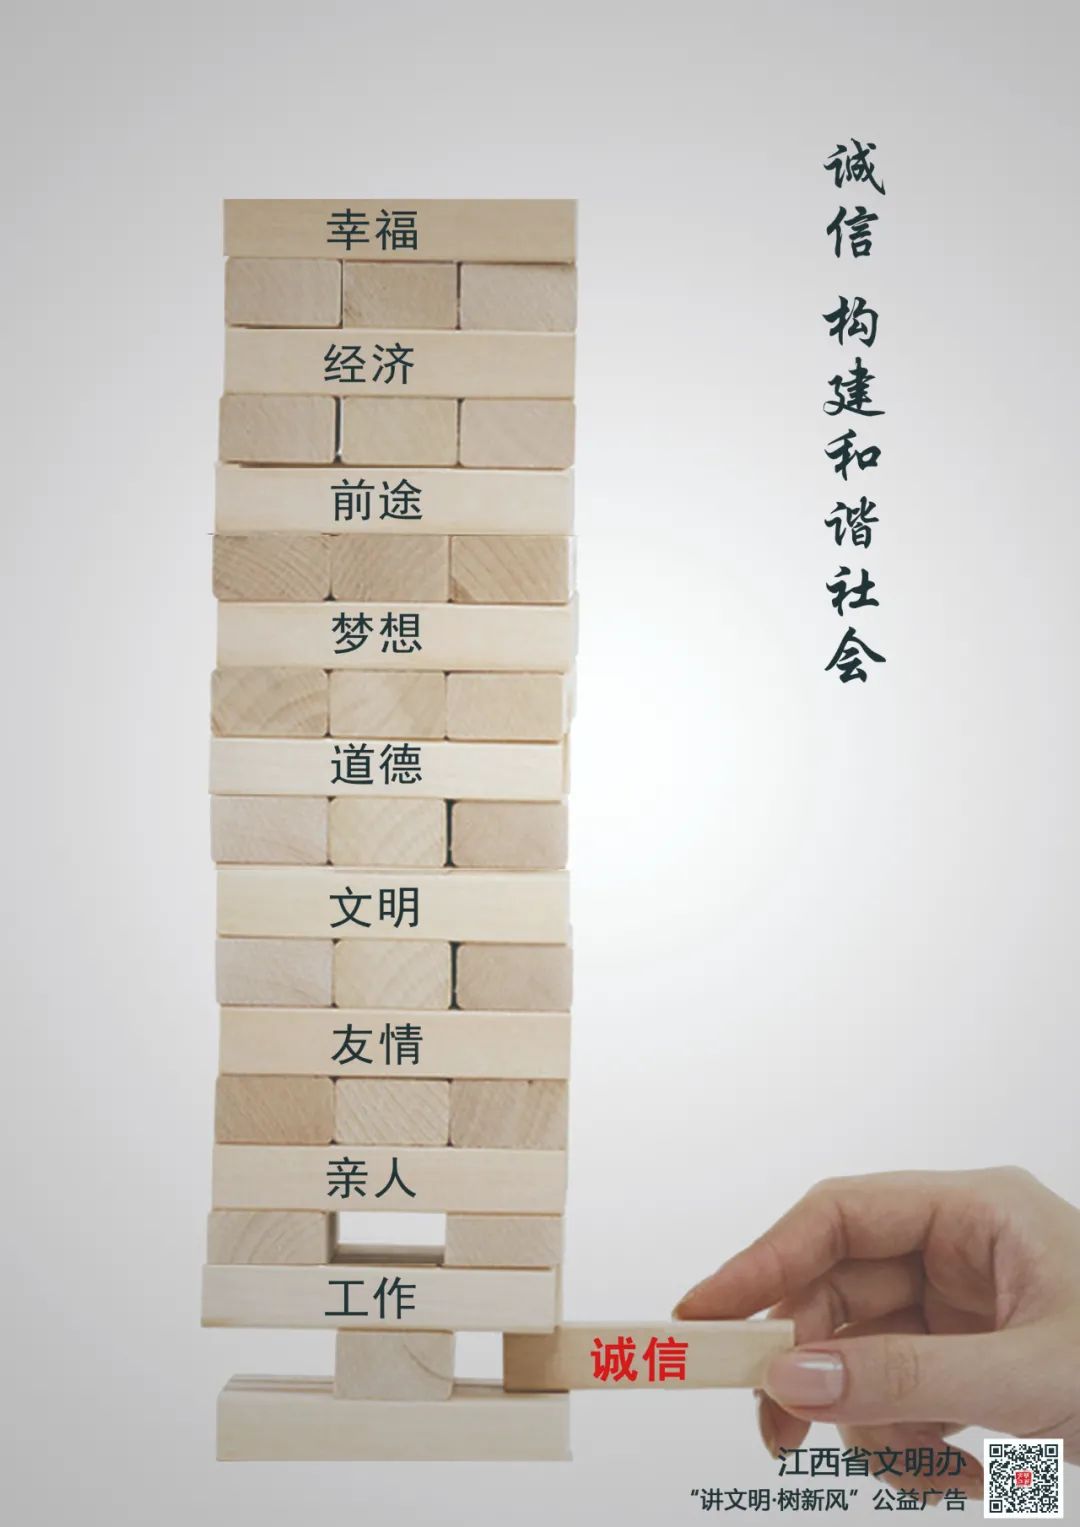 诚信 构建和谐社会
幸福
经济
前途
梦想
道德
文明
友情
亲人
工作
诚信
江西省文明办
“讲文明·树新风”公益广告